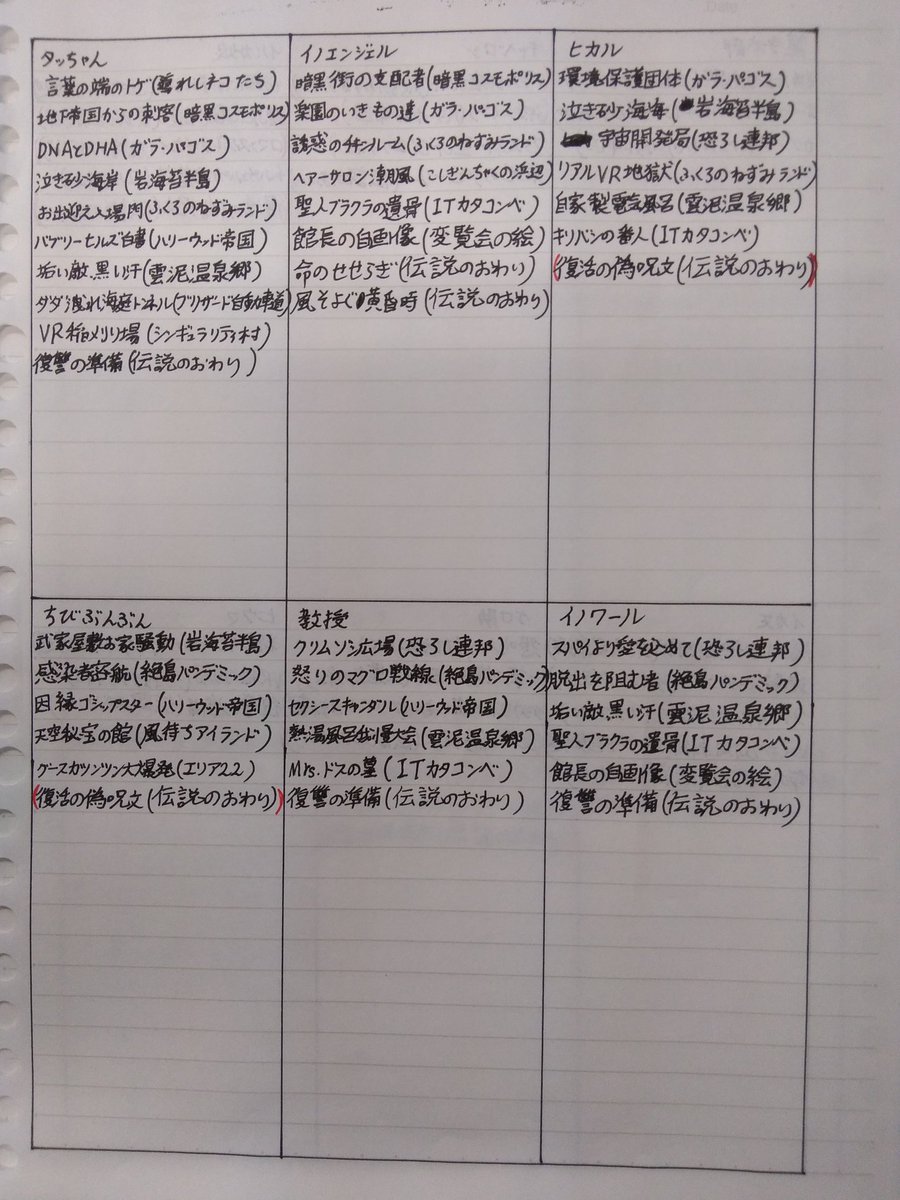 タッちゃん
言葉の端のトゲ(戯れしネコたち)
地下帝国からの刺客(暗黒コスモポリス)
DNAとDHA(ガラ・パゴス)
泣き砂海岸(岩海苔半島)
お出迎え入場門(ふくろのねずみランド)
バブリーヒルズ白書(ハリーウッド帝国)
垢い敵、黒い汗(雲泥温泉郷)
ダダ洩れ海底トンネル(ブリザード自動車道)
VR稲メリリ場(シンギュラリティ村)
復讐の準備(伝説のおわり)
イノエンジェル
暗黒街の支配者(暗黒コスモポリス)
楽園のいきもの達(ガラ・パゴス)
誘惑のチキンルーム(ふくろのねずみランド)
ヘアーサロン潮風(こしぎんちゃくの浜辺)
聖人ブラクラの遺骨(ITカタコンベ)
館長の自画像(変覧会の絵)
命のせせらぎ(伝説のおわり)
風そよぐ黄昏時(伝説のおわり)
ヒカル
環境保護団体(ガラ・パゴス)
泣き砂海海(岩海苔半島)
宇宙開発局(恐ろし連邦)
リアルVR地獄(ふくろのねずみランド)
自家製電気風呂(雲泥温泉郷)
キリバンの番人(ITカタコンベ)
(復活の偽呪文(伝説のおわり))
ちびぶんぶん
武家屋敷お家騒動(岩海苔半島)
感染者密航(絶島パンデミック)
因縁ゴシップスター(ハリーウッド帝国)
天空秘宝の館(風待ちアイランド)
グースカツンツン大爆発(エリア22)
(復活の偽呪文(伝説のおわり))
教授
クリムゾン広場(恐ろし連邦)
怒りのマグロ戦線(絶島パンデミック)
セクシースキャンダル(ハリーウッド帝国)
熱湯風呂我慢大会(雲泥温泉郷)
Mrs.ドスの墓(ITカタコンベ)
復讐の準備(伝説のおわり)
イノワール
スパイより愛を込めて(恐ろし連邦)
脱出を阻む者(絶島パンデミック)
垢い敵、黒い汗(雲泥温泉郷)
聖人ブラクラの遺骨(ITカタコンベ)
館長の自画像(変覧会の絵)
復讐の準備(伝説のおわり)